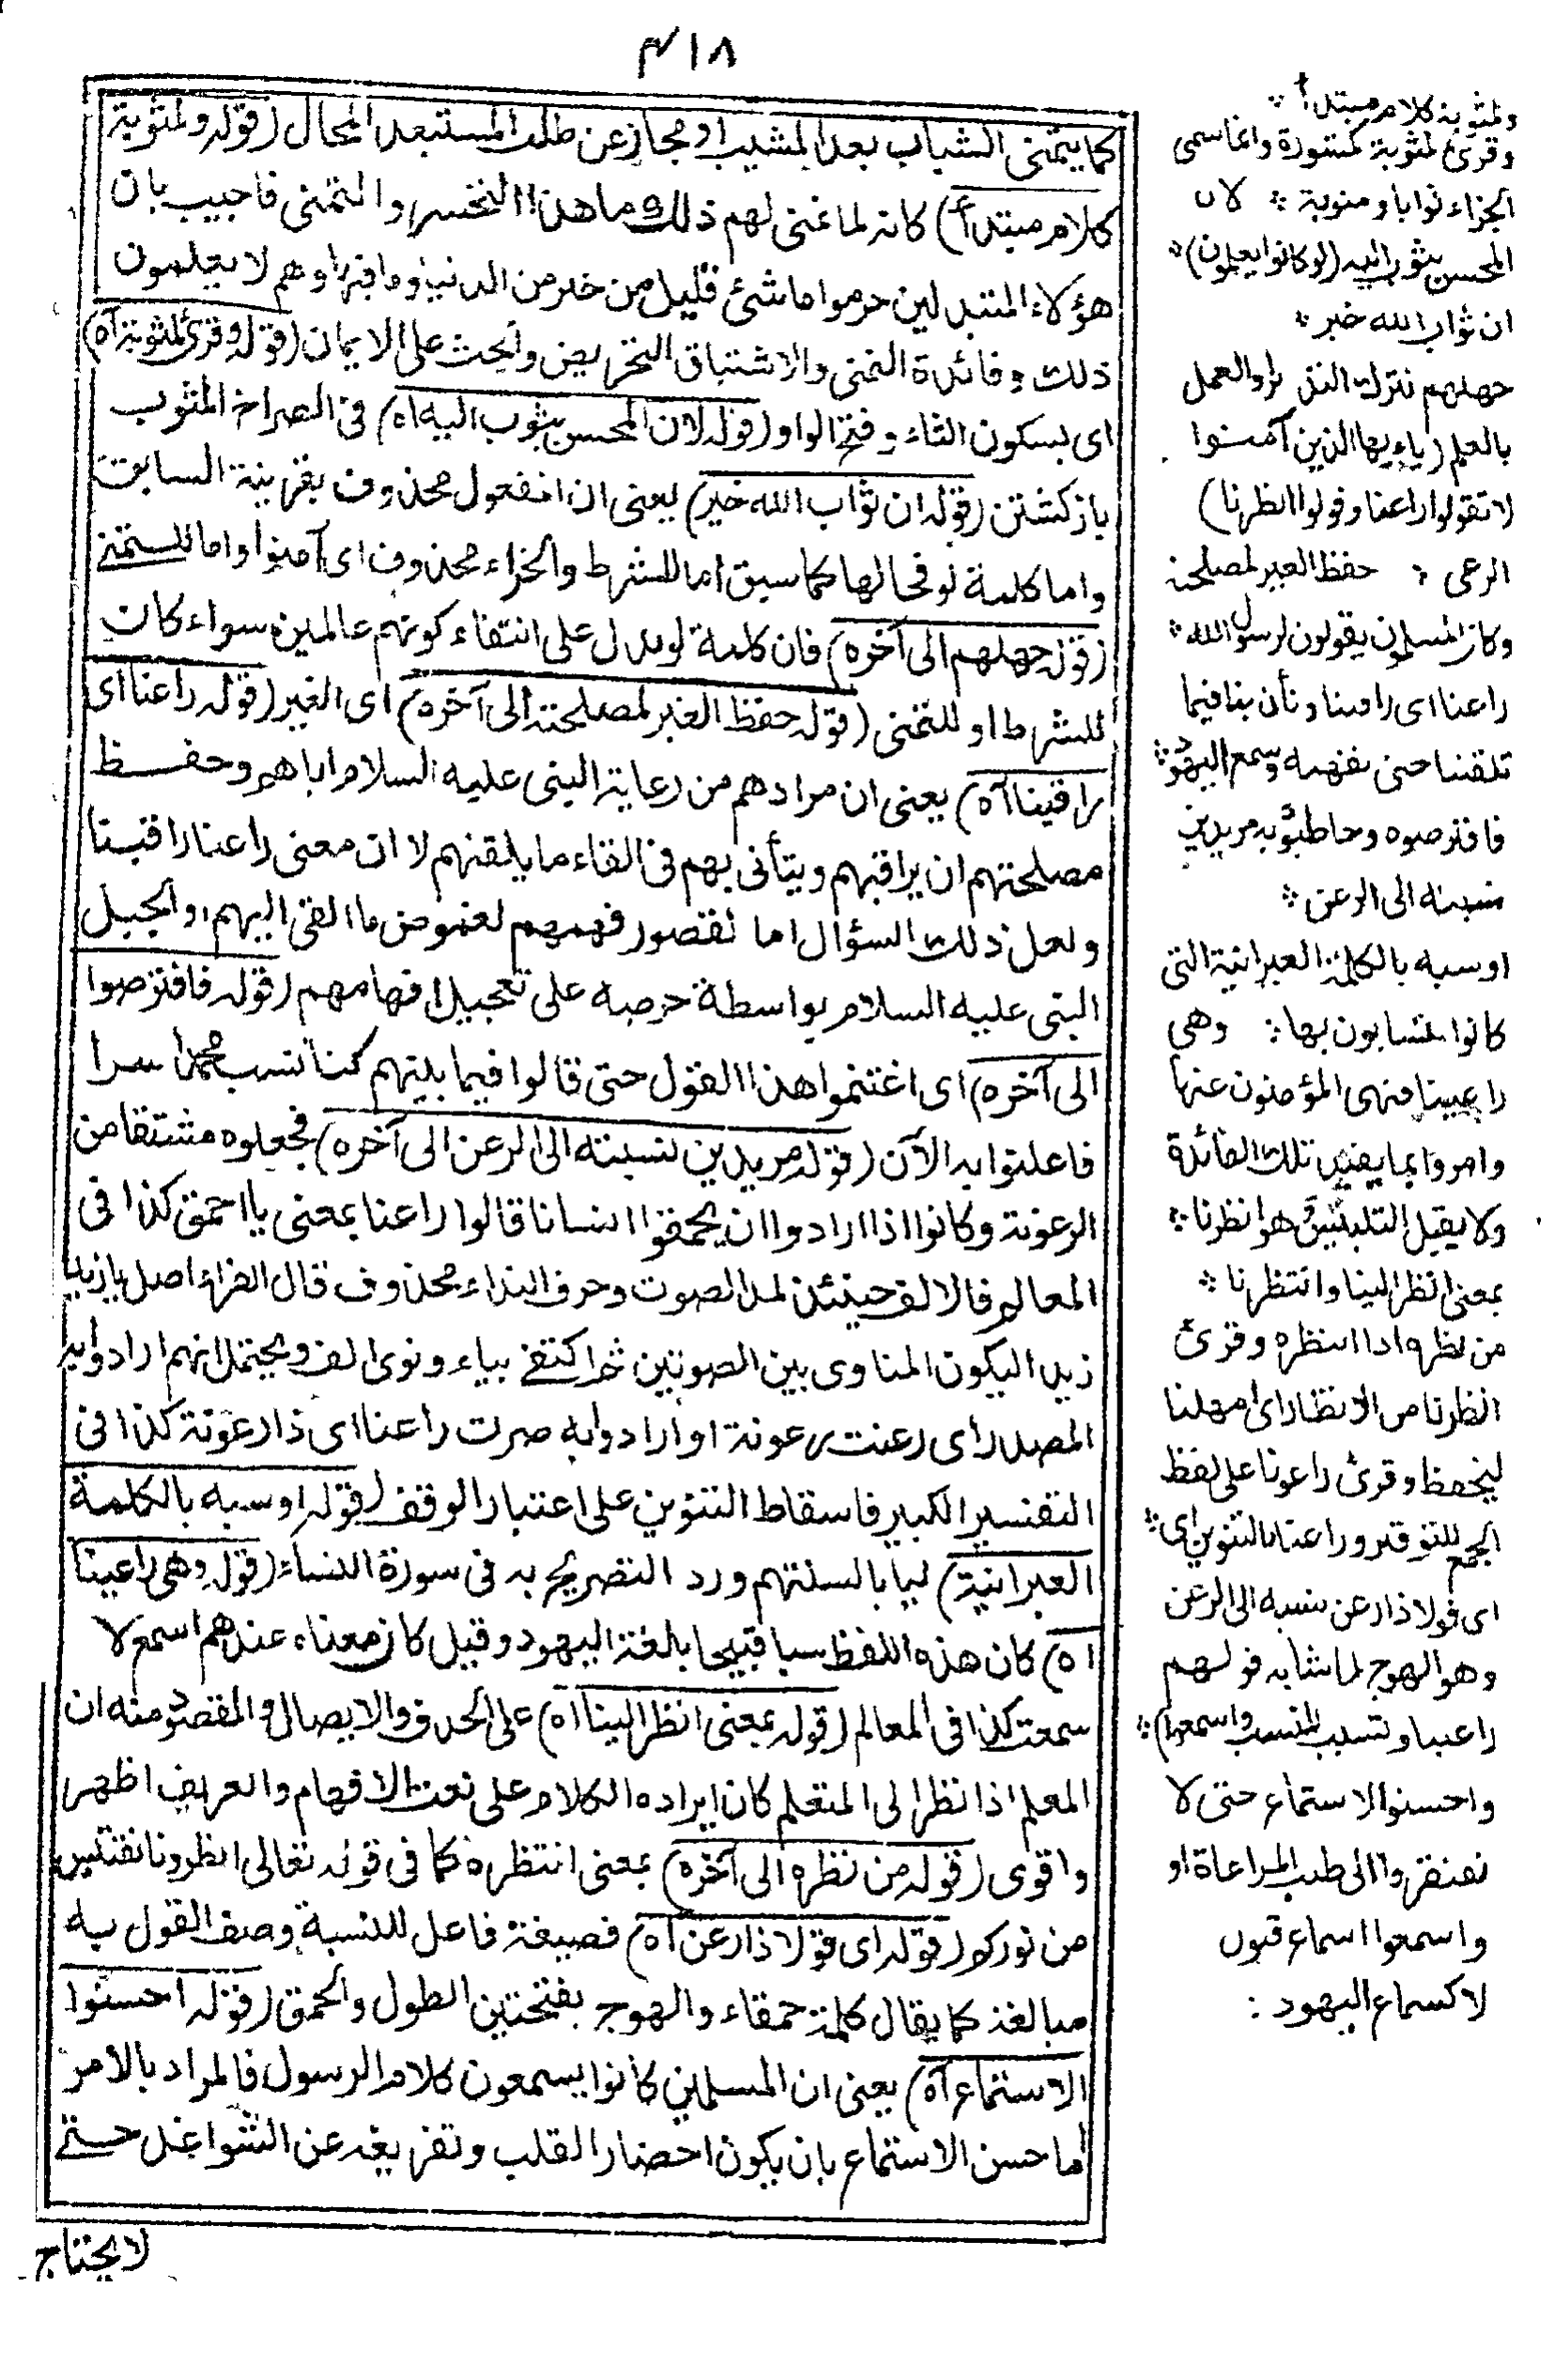 ٤١٨
كما يتمنى الشباب بعد المشيب او مجاز عن طلب المستبعد المحال (قوله ولمثوبة
كلام مبتدأ) كانه لما تمنى لهم ذلك ما هذا التحسر والتمنى فاجيب بان
هؤلاء المتبدلين حرموا ما شئ قليل من خير من الدنيا وما فيها وهم لا يعلمون
ذلك وفائدة التمنى والاشتياق التحريض والحث على الايمان (قوله وقرئ لمثوبة آه)
اى بسكون الثاء وفتح الواو (قوله لان المحسن يثوب اليه اه) فى الصراح المثوب
باز كشتن (قوله ان ثواب الله خير) يعنى ان المفعول محذوف بقرينة السابق
واما كلمة لو فحالها كما سبق اما للشرط والجزاء محذوف اى آمنوا واما للتمنى
(قوله جهلهم الى آخره) فان كلمة لو يدل على انتفاء كونهم عالمين سواء كان
للشرط او للتمنى (قوله حفظ الغير لمصلحته الى آخره) اى الغير (قوله راعنا اى
راقبنا آه) يعنى ان مرادهم من رعاية النبى عليه السلام اياهم وحفظ
مصلحتهم ان يراقبهم ويتأنى بهم فى القاء ما يلقنهم لا ان معنى راعنا راقبنا
ولعل ذلك السؤال اما لقصور فهمهم لغموض ما القى اليهم او لتعجيل
النبى عليه السلام بواسطة حرصه على تعجيل افهامهم (قوله فافترصوا
الى آخره) اى اغتنموا هذا القول حتى قالوا فيما بينهم كنا نسب محمدا سرا
فاعلنوا به الآن (قوله مريدين نسبته الى الرعن الى آخره) فجعلوه مشتقا من
الرعونة وكانوا اذا ارادوا ان يحمقوا انسانا قالوا راعنا بمعنى يا احمق كذا فى
المعالم فالالف حينئذ لمد الصوت وحرف النداء محذوف قال الفراء اصل يا زيد يا
زيد اليكون المناوى بين الصوتين ثم اكتفى بياء ونوى الف ويحتمل انهم ارادوا به
المصدر اى رعنت رعونة او ارادوا به صرت راعنا اى ذا رعونة كذا فى
التفسير الكبير فاسقاط التنوين على اعتبار الوقف (قوله او سبه بالكلمة
العبرانية) ليا بالسنتهم ورد التصريح به فى سورة النساء (قوله وهى راعينا
اه) كان هذه اللفظ سبا قبيحا بلغة اليهود وقيل كان معناه عندهم اسمع لا
سمعت كذا فى المعالم (قوله بمعنى انظر الينا اه) على الحذف والايصال والمقصود منه ان
المعلم اذا نظر الى المتعلم كان ايراده الكلام على نعت الافهام والعريف اظهر
واقوى (قوله من نظره الى آخره) بمعنى انتظره كما فى قوله تعالى انظرونا نقتبس
من نوركم (قوله اى قولا ذا رعن آه) فصيغة فاعل للنسبة وصف القول به
مبالغة كما يقال كلمة حمقاء والهوج بفتحتين الطول والحمق (قوله احسنوا
الاستماع آه) يعنى ان المسلمين كانوا يسمعون كلام الرسول فالمراد بالامر
اما حسن الاستماع بان يكون احضار القلب وتفريغه عن الشواغل حتى
لا يحتاج
ولمثوبة كلام مبتدأ
وقرئ لمثوبة كمشورة وانما سمى
الجزاء ثوابا ومثوبة لان
المحسن يثوب اليه (لو كانوا يعلمون)
ان ثواب الله خير
جهلهم لترك التدبر او العمل
بالعلم (يا ايها الذين آمنوا
لا تقولوا راعنا وقولوا انظرنا)
الرعى حفظ الغير لمصلحته
وكان المسلمون يقولون لرسول الله
راعنا اى راقبنا وتأن بنا فيما
تلقننا حتى نفهمه وسمع اليهود
فافترصوه وخاطبوه به مريدين
نسبته الى الرعن
او سبه بالكلمة العبرانية التى
كانوا يتسابون بها وهى
راعينا فنهى المؤمنون عنها
وامروا بما يفيد تلك الفائدة
ولا يقبل التلبيس وهو انظرنا
بمعنى انظر الينا وانتظرنا
من نظره اذا انتظره وقرئ
انظرنا من الانظار اى امهلنا
لنحفظ وقرئ راعونا على لفظ
الجمع للتوقير وراعنا بالتنوين اى
اى قولا ذا رعن نسبه الى الرعن
وهو الهوج لما شابه قولهم
راعينا وتسبب للسب (واسمعوا)
واحسنوا الاستماع حتى لا
تفتقروا الى طلب المراعاة او
واسمعوا اسماع قبول
لا كسماع اليهود